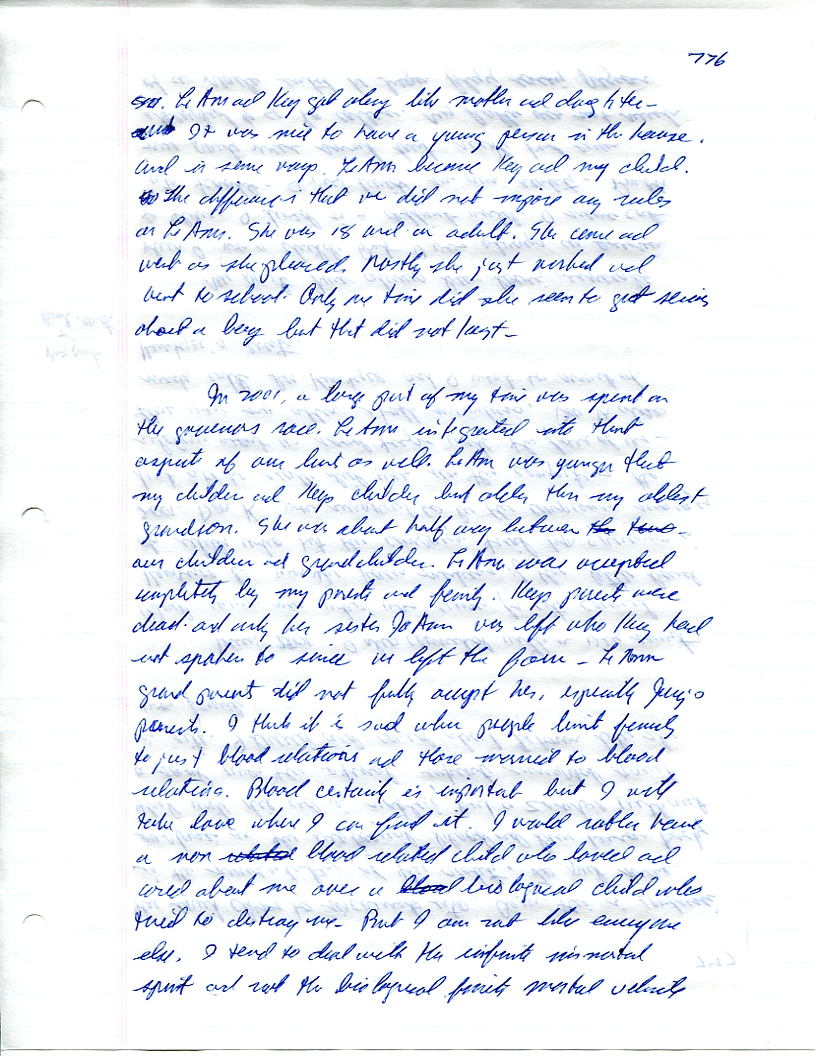 776
son. LeAnn ad Kay got along like mother ad daughter-
It was nice to have a young person in the house.
and in some ways. LeAnn became Kay ad my child.
The difference is that we did not impose any rules
on LeAnn. She was 18 and an adult. She come ad
went as she pleased. Mostly she just worked ad
went to school. Only one time did she seem to get serious
about a boy but that did not last-
In 2001, a large part of my time was spent on
the governors race. LeAnn integrated into that
aspect of our lives as well. LeAnn was younger that
my children ad Kays children but older then my oldest
grandson. She was about half way between the two-
our children ad grandchildren. LeAnn was accepted
completely by my parents ad family. Kays parents were
dead. ad only her sister JoAnn was left who Kay had
not spoken to since we left the farm - LeAnn
grand parents did not fully accept her, especially
parents. I think it is sad when people limit family
to just blood relations ad those married to blood
relations. Blood certainly is important but I will
take love where I can find it. I would rather have
a non related blood related child who loved ad
cared about me over a blood biological child who
tried to destroy me- But I am not like everyone
else. I tend to deal with the infinite immortal
spirit ad not the biological finite mortal vehicle